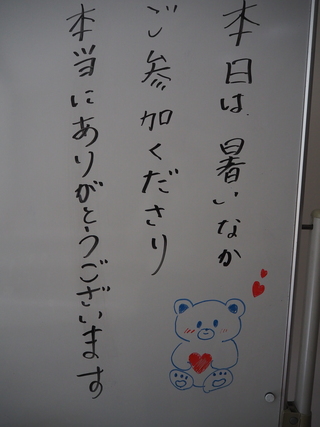 本日は、暑いなか
ご参加くださり
本当にありがとうございます